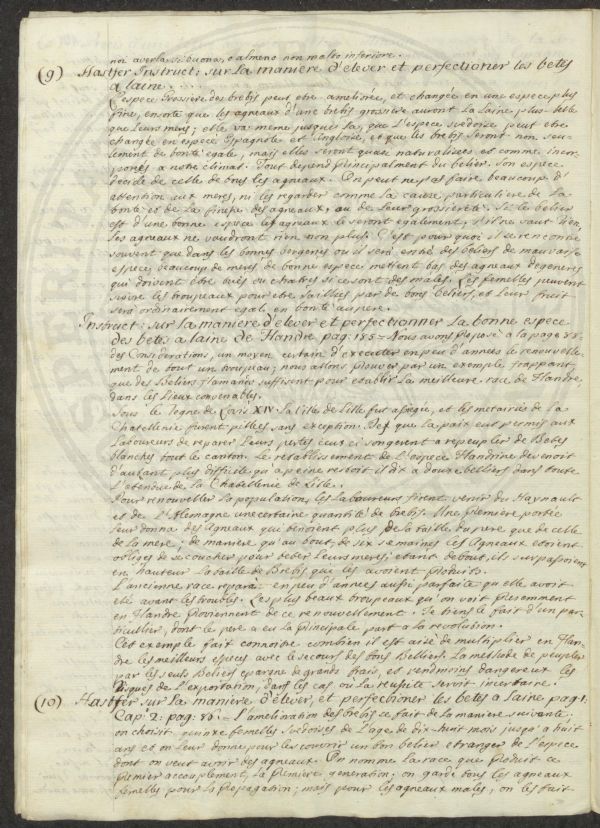 noi averla si buona, o almeno non molto inferiore.
(9) Hastfer Instruct: sur La maniere d'elever et perfectioner les betes
a laine . . . .
L'espece grossiere des brebis peut etre ameliorée, et changée en une espece plus
fine, en sorte que les agneaux d'une brebis grossiere auront la laine plus belle
que Leurs meres; elle va meme jusques là, que L'espece suedoise peut etre
changée en espece Espagnole et Angloise, et que les brebis seront non seu-
lement de bonté egale, mais elles seront quasi naturalisées et comme incor-
porées a notre climat. Tout depend principalment du belier. Son espece
decide de celle de tous les agneaux. On peut ne pas faire beaucoup d'
attention aux meres, ni les regarder comme la cause particuliere de La
bonté et de La finesse des agneaux, ou de Leur grossiereté. Si le belier
est d'une bonne espece les agneaux le seront egalement, s'il ne vaut rien,
Les agneaux ne vaudront rien non plus. C'est pourquoi il se rencontre
souvent que dans les bonnes bergeries ou il sera entré des beliers de mauvaise
espece, beaucoup de meres de bonne espece mettent bas des agneaux degenerés
qui doivent etre tués ou chatrés si ce sont des males. Les femelles peuvent
suivre les troupeaux pour etre saillies par de bons beliers, et Leur fruit
sera ordinairement egal en bonté au pere.
Instruct: sur La maniere d'elever et perfectionner La bonne espece
des betes a laine de Flandre pag. 185 = Nous avons proposé a la page 88
des Considerations, un moyen certain d'executer en peu d'années le renouvelle-
ment de tout un troupeau; nous allons prouver par un exemple frappant
que des Beliers flamands suffisent pour etablir La meilleure race de Flandre,
dans les Lieux convenables.
Sous le Regne de Louis XIV. La Ville de Lille fut assiegée, et les metairies de La
Chatellenie furent pillées sans exception. Dez que La paix eut permis aux
Laboureurs de reparer Leurs pertes ceux ci songerent a repeupler de Betes
blanches tout le canton. Le retablissement de L'espece Flandrine devenoit
d'autant plus difficile qu'a peine restoit il dix a douze belliers dans toute
L'etendue de La Chatellenie de Lille.
Pour renouveller La population, les Laboureurs firent venir du Haynault
et de L'Allemagne une certaine quantité de brebis. Une premiere portée
Leur donna des agneaux qui tenoient plus de La taille du pere que de celle
de La mere; de maniere qu'au bout de six semaines les Agneaux etoient
obligés de se coucher pour teter Leurs meres; etant debout, ils surpassoient
en hauteur La taille des Brebis qui les avoient produits.
L'ancienne race reparut en peu d'années aussi parfaite qu'elle avoit
eté avant les troubles. Les plus beaux troupeaux qu'on voit presemment
en Flandre proviennent de ce renouvellement. Je tiens le fait d'un par-
ticullier, dont le pere a eu La principale part a La revolution.
Cet exemple fait connoitre combien il est aisé de multiplier en Flan-
dre les meilleurs especes avec le secours des bons Belliers. La methode de peupler
par les seuls Beliers eparne de grands frais, et rend moins dangereux les
risques de L'exportation, dans les cas ou La reussite seroit incertaine.
(10) Hastfer sur La maniere d'elever, et perfectioner les betes a laine pag. 1.
Cap: 2: pag: 88 = L'amelination des brebis se fait de La maniere suivante:
on choisit quinze femelles suedoises de L'age de dix-huit mois jusqu'a huit
ans et on Leur donne pour les couvrir un bon belier etranger de L'espece
dont on veut avoir des agneaux. On nomme La race que produit ce
premier accouplement, La premiere generation; on garde tous les agneaux
femelles pour La propagation; mais pour les agneaux males, on les fait